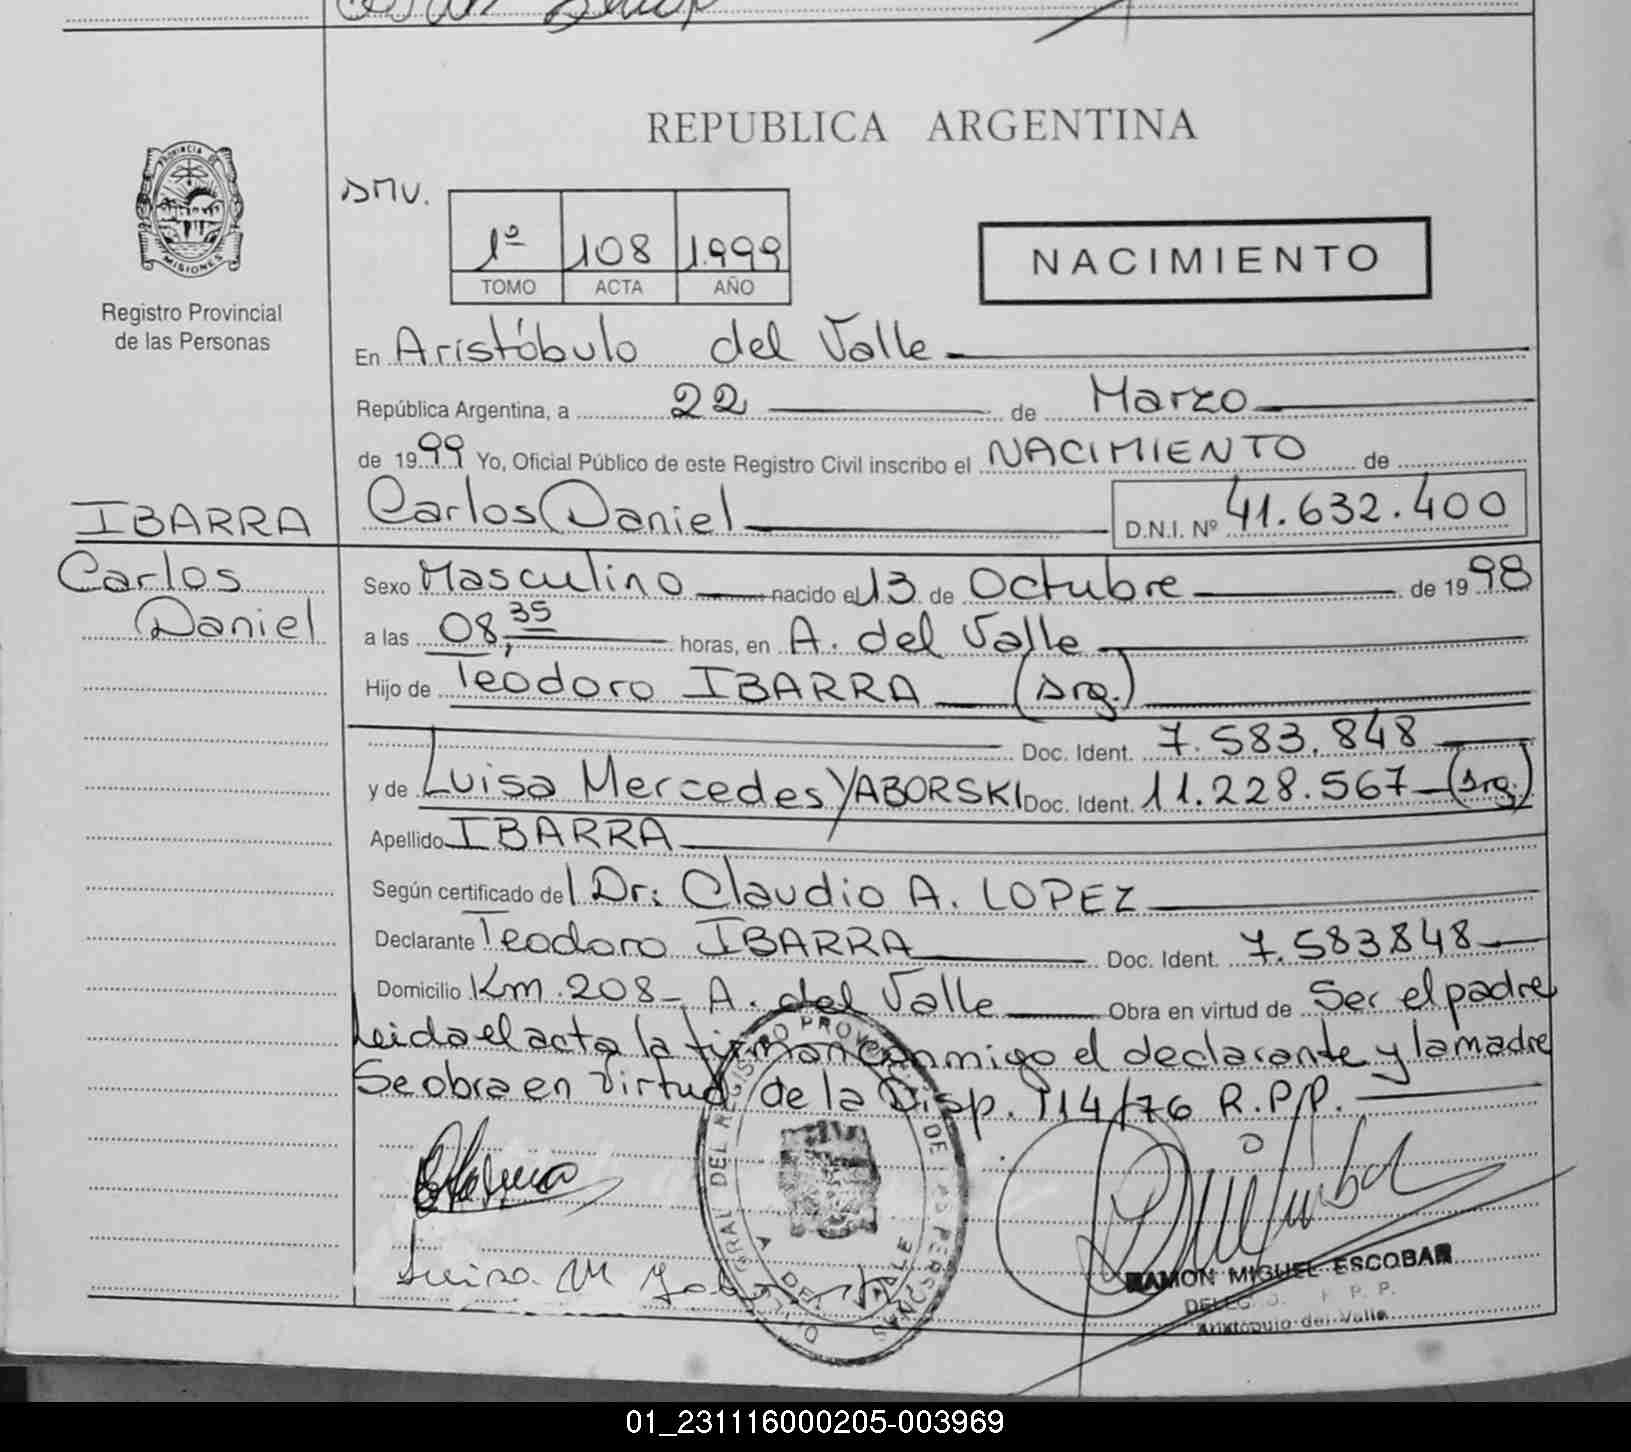 REPUBLICA ARGENTINA
PROVINCIA DE
MISIONES
Registro Provincial
de las Personas
SMV.
1º 108 1.999
TOMO ACTA AÑO
NACIMIENTO
En Aristóbulo del Valle
República Argentina, a 22 de Marzo
de 1999 Yo, Oficial Público de este Registro Civil inscribo el NACIMIENTO de
IBARRA
Carlos
Daniel
Carlos Daniel D.N.I. Nº 41.632.400
Sexo Masculino nacido el 13 de Octubre de 1998
a las 08,35 horas, en A. del Valle
Hijo de Teodoro IBARRA (arg.)
Doc. Ident. 7.583.848
y de Luisa Mercedes YABORSKI Doc. Ident. 11.228.567 (arg.)
Apellido IBARRA
Según certificado del Dr: Claudio A. LOPEZ
Declarante Teodoro IBARRA Doc. Ident. 7.583848
Domicilio Km. 208 - A. del Valle Obra en virtud de Ser el padre
Leida el acta la firman conmigo el declarante y la madre
Se obra en virtud de la Disp. 114/76 R.P.P.
DEL REGISTRO PROVINCIAL DE LAS PERSONAS
A. DEL VALLE
RAMON MIGUEL ESCOBAR
R. P. P.
Aristóbulo del Valle
01_231116000205-003969